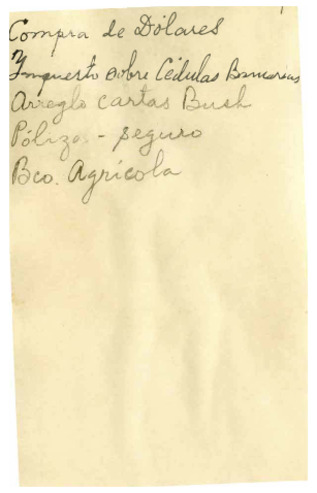 Compra de Dólares
y
Impuesto sobre Cédulas Bancarias
Arreglo cartas Bush
Pólizas - seguro
Bco. Agrícola